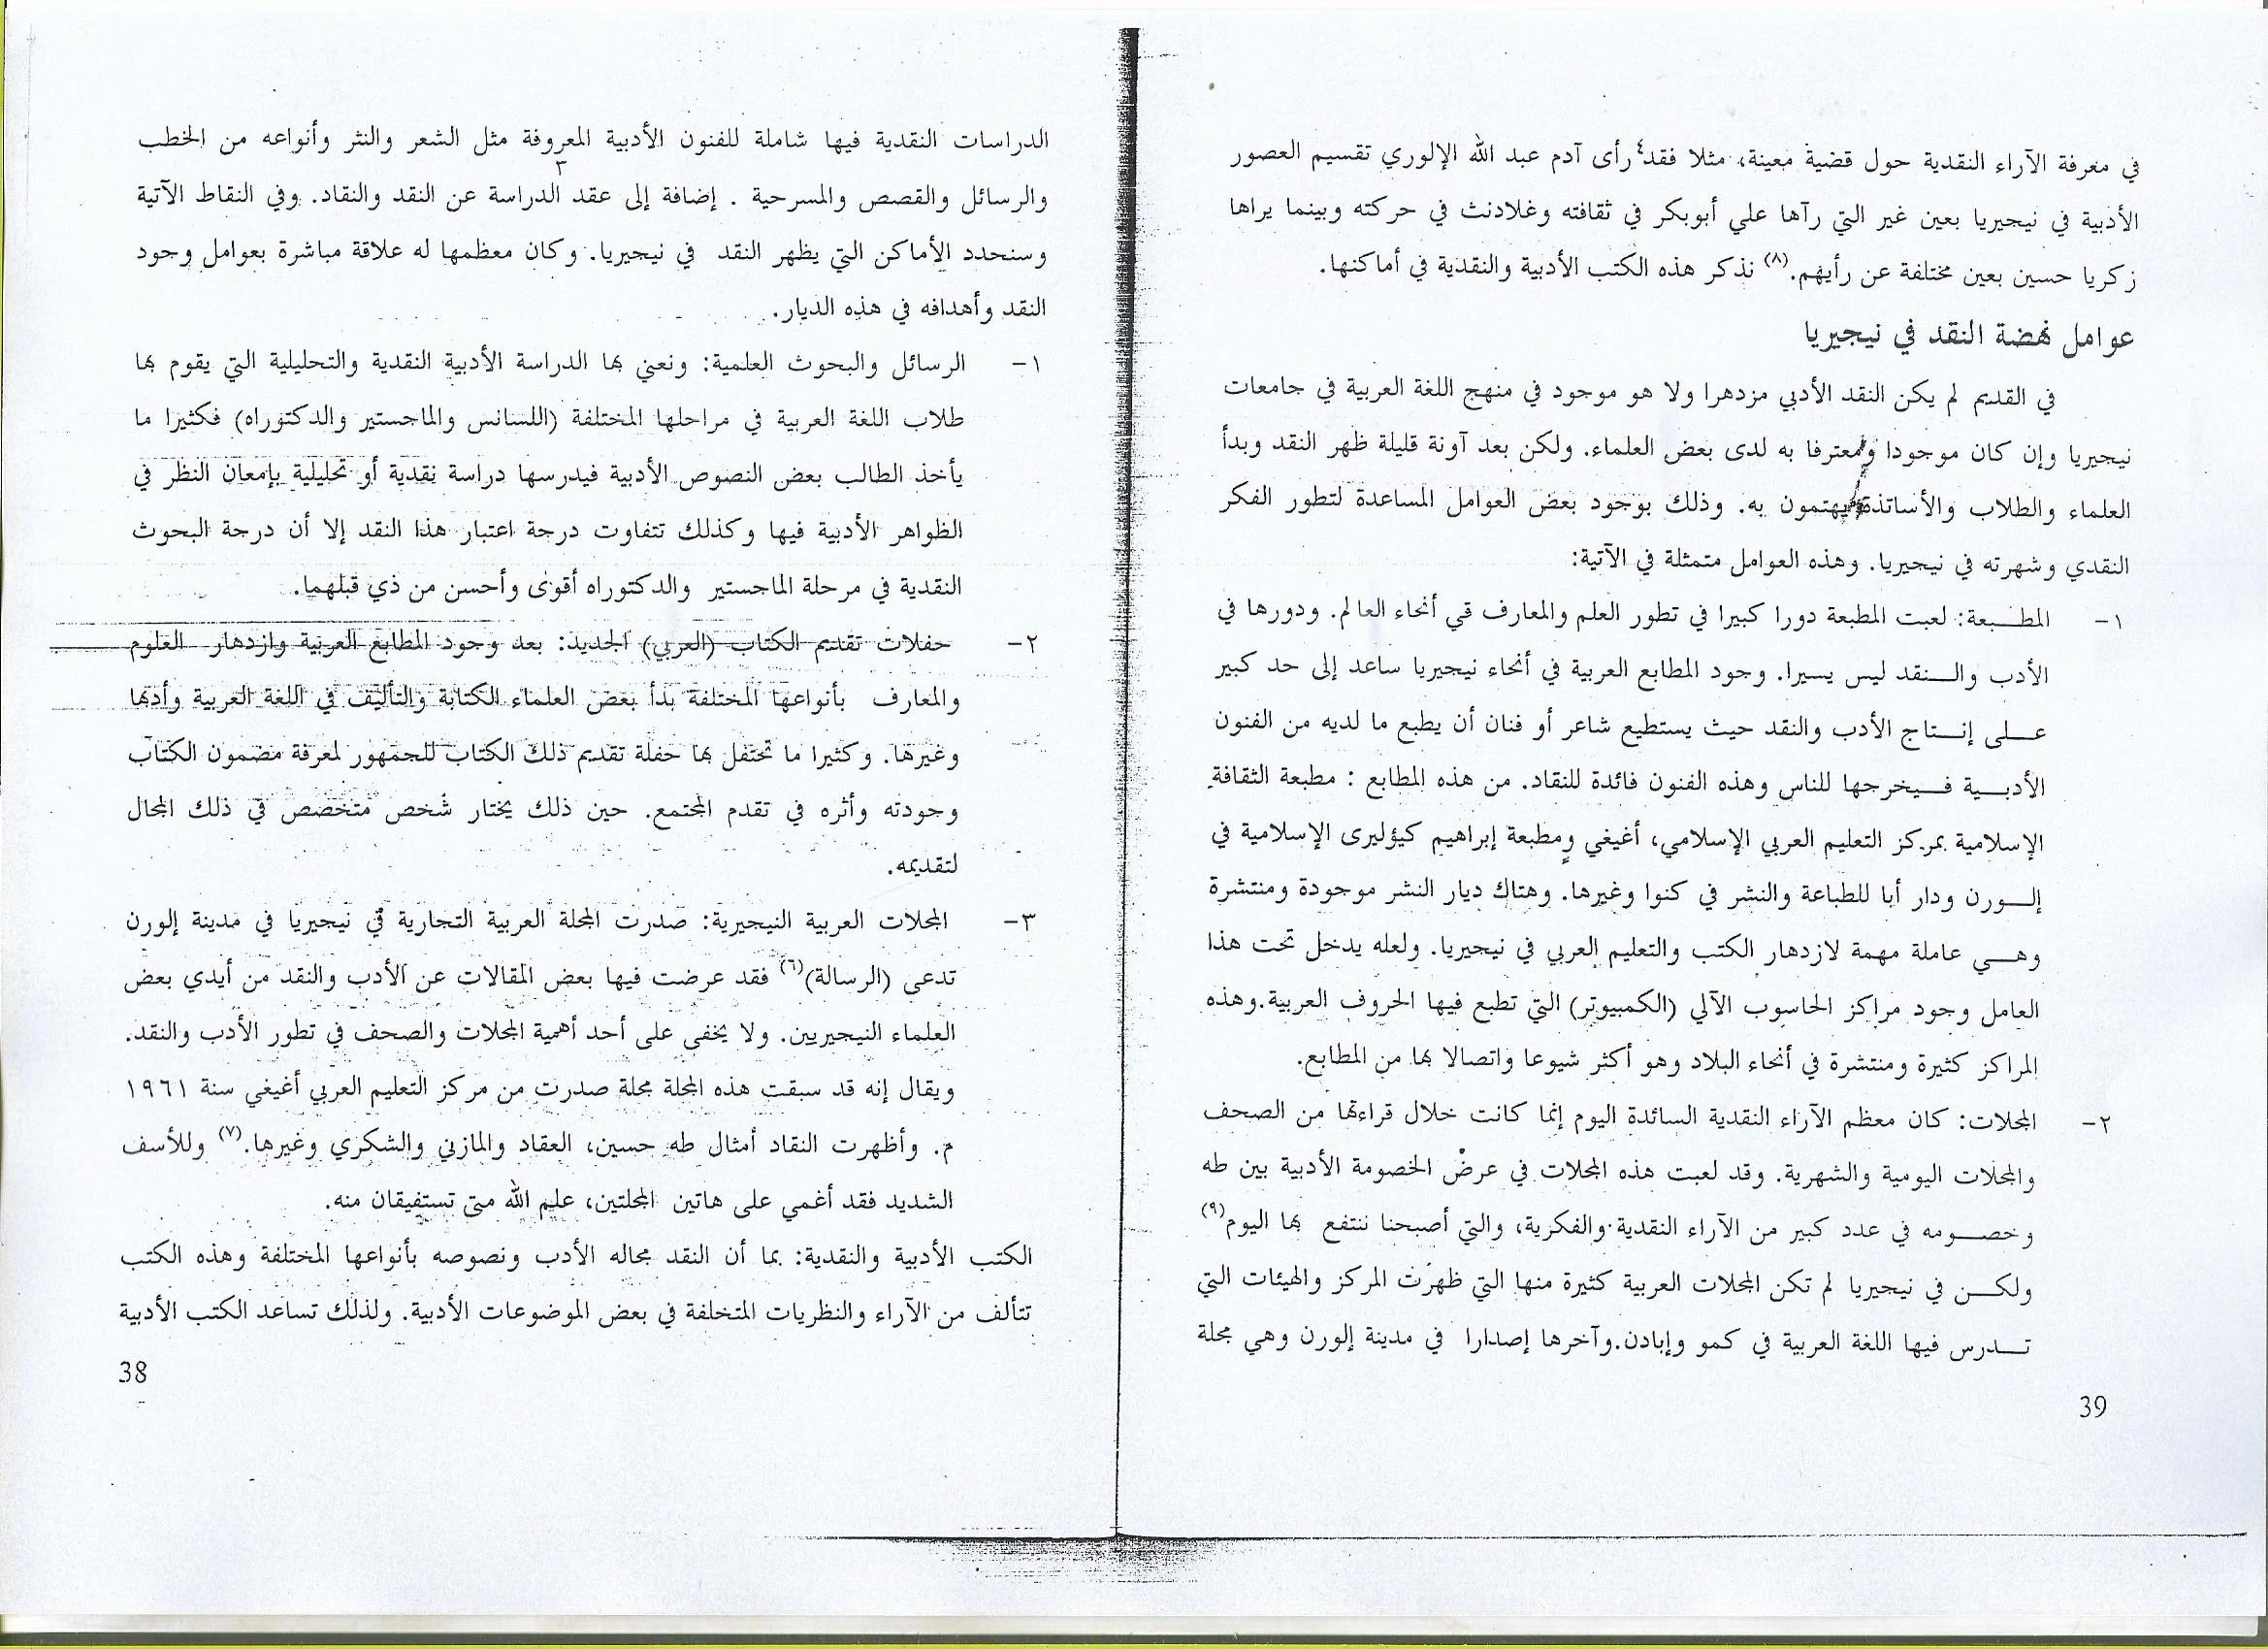 الدراسات النقدية فيها شاملة للفنون الأدبية المعروفة مثل الشعر والنثر وأنواعه من الخطب
والرسائل والقصص والمسرحية . إضافة إلى عقد الدراسة عن النقد والنقاد. وفي النقاط الآتية
وسنحدد الأماكن التي يظهر النقد في نيجيريا. وكان معظمها له علاقة مباشرة بعوامل وجود
النقد وأهدافه في هذه الديار.
١- الرسائل والبحوث العلمية: ونعني بها الدراسة الأدبية النقدية والتحليلية التي يقوم بها
طلاب اللغة العربية في مراحلها المختلفة (اللسانس والماجستير والدكتوراه) فكثيرا ما
يأخذ الطالب بعض النصوص الأدبية فيدرسها دراسة نقدية أو تحليلية بإمعان النظر في
الظواهر الأدبية فيها وكذلك تتفاوت درجة اعتبار هذا النقد إلا أن درجة البحوث
النقدية في مرحلة الماجستير والدكتوراه أقوى وأحسن من ذي قبلهما.
٢- حفلات تقديم الكتاب (العربي) الجديد: بعد وجود المطابع العربية وازدهار العلوم
والمعارف بأنواعها المختلفة بدأ بعض العلماء الكتابة والتأليف في اللغة العربية وأدبها
وغيرها. وكثيرا ما تحتفل بها حفلة تقديم ذلك الكتاب للجمهور لمعرفة مضمون الكتاب
وجودته وأثره في تقدم المجتمع. حين ذلك يختار شخص متخصص في ذلك المجال
لتقديمه.
٣- المجلات العربية النيجيرية: صدرت المجلة العربية التجارية في نيجيريا في مدينة إلورن
تدعى (الرسالة)(٦) فقد عرضت فيها بعض المقالات عن الأدب والنقد من أيدي بعض
العلماء النيجيريين. ولا يخفى على أحد أهمية المجلات والصحف في تطور الأدب والنقد.
ويقال إنه قد سبقت هذه المجلة مجلة صدرت من مركز التعليم العربي أغيغي سنة ١٩٦١
م. وأظهرت النقاد أمثال طه حسين، العقاد والمازني والشكري وغيرها.(٧) وللأسف
الشديد فقد أغمي على هاتين المجلتين، علم الله متى تستفيقان منه.
الكتب الأدبية والنقدية: بما أن النقد مجاله الأدب ونصوصه بأنواعها المختلفة وهذه الكتب
تتألف من الآراء والنظريات المتخلفة في بعض الموضوعات الأدبية. ولذلك تساعد الكتب الأدبية
38
في معرفة الآراء النقدية حول قضية معينة، مثلا فقد رأى آدم عبد الله الإلوري تقسيم العصور
الأدبية في نيجيريا بعين غير التي رآها علي أبوبكر في ثقافته وغلادنث في حركته وبينما يراها
زكريا حسين بعين مختلفة عن رأيهم.(٨) نذكر هذه الكتب الأدبية والنقدية في أماكنها.
عوامل نهضة النقد في نيجيريا
في القديم لم يكن النقد الأدبي مزدهرا ولا هو موجود في منهج اللغة العربية في جامعات
نيجيريا وإن كان موجودا ومعترفا به لدى بعض العلماء. ولكن بعد آونة قليلة ظهر النقد وبدأ
العلماء والطلاب والأساتذة يهتمون به. وذلك بوجود بعض العوامل المساعدة لتطور الفكر
النقدي وشهرته في نيجيريا. وهذه العوامل متمثلة في الآتية:
١- المطبعة: لعبت المطبعة دورا كبيرا في تطور العلم والمعارف في أنحاء العالم. ودورها في
الأدب والنقد ليس يسيرا. وجود المطابع العربية في أنحاء نيجيريا ساعد إلى حد كبير
على إنتاج الأدب والنقد حيث يستطيع شاعر أو فنان أن يطبع ما لديه من الفنون
الأدبية فيخرجها للناس وهذه الفنون فائدة للنقاد. من هذه المطابع : مطبعة الثقافة
الإسلامية بمركز التعليم العربي الإسلامي، أغيغي ومطبعة إبراهيم كيؤليرى الإسلامية في
إلورن ودار أبا للطباعة والنشر في كنوا وغيرها. وهتاك ديار النشر موجودة ومنتشرة
وهي عاملة مهمة لازدهار الكتب والتعليم العربي في نيجيريا. ولعله يدخل تحت هذا
العامل وجود مراكز الحاسوب الآلي (الكمبيوتر) التي تطبع فيها الحروف العربية.وهذه
المراكز كثيرة ومنتشرة في أنحاء البلاد وهو أكثر شيوعا واتصالا بها من المطابع.
٢- المجلات: كان معظم الآراء النقدية السائدة اليوم إنما كانت خلال قراءتها من الصحف
والمجلات اليومية والشهرية. وقد لعبت هذه المجلات في عرض الخصومة الأدبية بين طه
وخصومه في عدد كبير من الآراء النقدية والفكرية، والتي أصبحنا ننتفع بها اليوم(٩)
ولكن في نيجيريا لم تكن المجلات العربية كثيرة منها التي ظهرت المركز والهيئات التي
تدرس فيها اللغة العربية في كمو وإبادن.وآخرها إصدارا في مدينة إلورن وهي مجلة
39